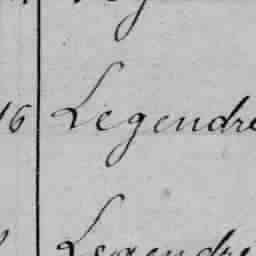 16 Legendre
Legendre